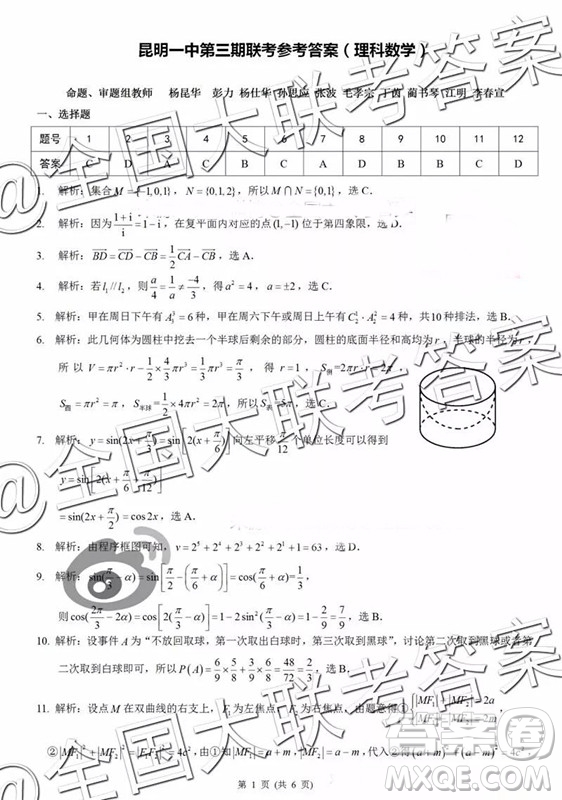 昆明一中第三期联考参考答案（理科数学）
命题、审题组教师 杨昆华 彭力 杨仕华 孙思应 张波 毛孝宗 丁茵 蔺书琴 江明 李春宣
一、选择题
题号 1 2 3 4 5 6 7 8 9 10 11 12
答案 C D A C B D A D
1. 解析：集合 M={-1,0,1}，N={0,1,2}，所以 M∩N={0,1}，选 C．
2. 解析：因为 (1+i)/i=1-i，在复平面内对应的点(1,-1)位于第四象限，选 D．
3. 解析：BD=CD-CB=1/2 CA-CB，选 A．
4. 解析：若 l₁//l₂，则 a/4=1/a≠-4/3，得 a²=4，a=±2，选 C．
5. 解析：甲在周日下午有 A₃³=6种，甲在周六下午或周日上午有 C₂¹·A₂²=4种，共10种排法，选 B．
6. 解析：此几何体为圆柱中挖去一个半球后剩余的部分，圆柱的底面半径和高均为 r，半球的半径为 r，
所以 V=πr²·r-1/2×4/3πr³=1/3πr³=π/3，得 r=1，S侧=2πr·r=2π，
S圆=πr²=π，S半球=1/2×4πr²=2π，所以 S表=5π，选 D．
7. 解析：y=sin(2x+π/3)=sin[2(x+π/6)]向左平移π/12个单位长度可以得到
y=sin[2(x+π/6+π/12)]
=sin(2x+π/2)=cos2x，选 A．
8. 解析：由程序框图可知，v=2⁵+2⁴+2³+2²+2+1=63，选 D．
9. 解析：sin(π/3-α)=sin[π/2-(π/6+α)]=cos(π/6+α)=1/3，
则cos(2π/3-2α)=cos[2(π/3-α)]=1-2sin²(π/3-α)=1-2/9=7/9
10. 解析：设事件 A 为“不放回取球，第一次取出白球时，第三次取到黑球”，讨论第二次取到黑球或者第
二次取到白球即可，所以 P(A)=6/9×5/8+3/9×6/8=48/72=2/3，选 B．
11. 解析：设点 M 在双曲线的右支上，F₁为左焦点，F₂为右焦点，由题意得①|MF₁|-|MF₂|=2a
|MF₁|+|MF₂|=2m，
②|MF₁|²+|MF₂|²=|F₁F₂|²=4c²，由①得|MF₁|=a+m，|MF₂|=a-m，代入②得(a+m)²+(a-m)²=4c²，
第 1 页（共 6 页）
@全国大联考答案
@全国大联考答案
答案圈
MXQE.COM